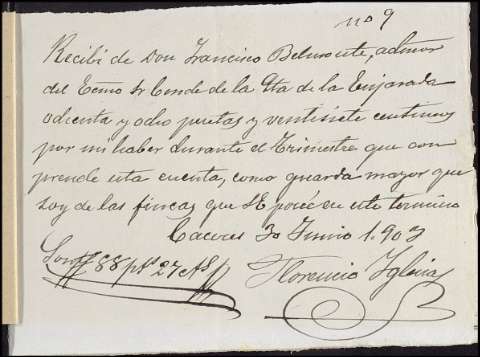 nº 9
Recibí de Don Francisco Belmonte, admor
del Ecmo Sr Conde de la Qta de la Enjarada
ochenta y ocho pesetas y ventisiete centimos
por mi haber durante el Trimestre que com
prende esta cuenta, como guarda mayor que
soy de las fincas que S.E. poseé en este termino
Caceres 30 Junio 1.903
Son 88 pts 27 cts
Florencio Iglesias